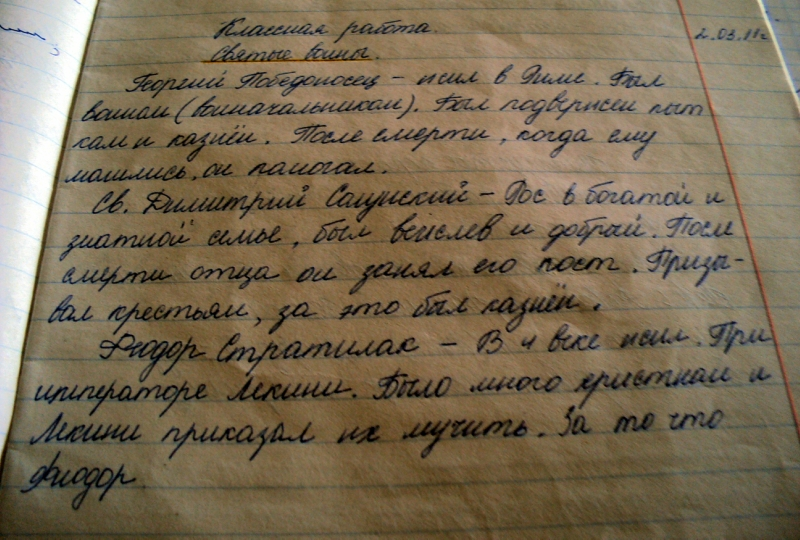 Классная работа. 2.03.11г
Святые воины.
Георгий Победоносец – жил в Риме. Был
воином (военачальником). Был подвержен пыт
кам и казнён. После смерти, когда ему
молились, он помогал.
Св. Димитрий Солунский – Рос в богатой и
знатной семье, был вежлев и добрый. После
смерти отца он занял его пост. Призы-
вал крестьян, за это был казнён.
Феодор Стратилак – В 4 веке жил. При
императоре Лекини. Было много христиан и
Лекини приказал их мучить. За то что
Феодор